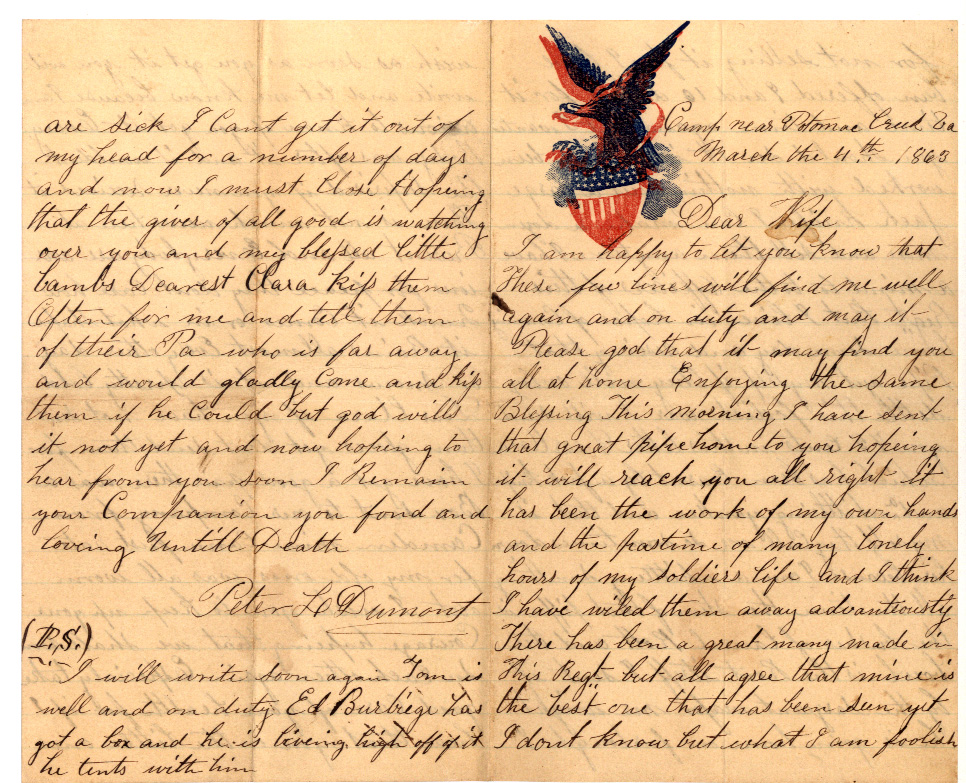 Camp near Potomac Creek Va
March the 4th 1863
Dear Wife
I am happy to let you know that
These few lines will find me well
again and on duty and may it
Please god that it may find you
all at home Enjoying the same
Blessing This morning I have sent
that great pipe home to you hopeing
it will reach you all right it
has been the work of my own hands
and the pastime of many lonely
hours of my soldier life and I think
I have wiled them away advanteously
There has been a great many made in
This Regt but all agree that mine is
the best one that has been seen yet
I dont know but what I am foolish
are sick I Cant get it out of
my head for a number of days
and now I must Close Hopeing
that the giver of all good is watching
over you and my blessed little
Lambs Dearest Clara kiss them
Often for me and tell them
of their Pa who is far away
and would gladly Come and kiss
them if he Could but god wills
it not yet and now hopeing to
hear from you soon I Remain
your Companion you fond and
loveing Untill Death
Peter L Dumont
(P.S.)
I will write soon again Tom is
well and on duty Ed Burbiege has
got a box and he is liveing high off of it
he tents with him